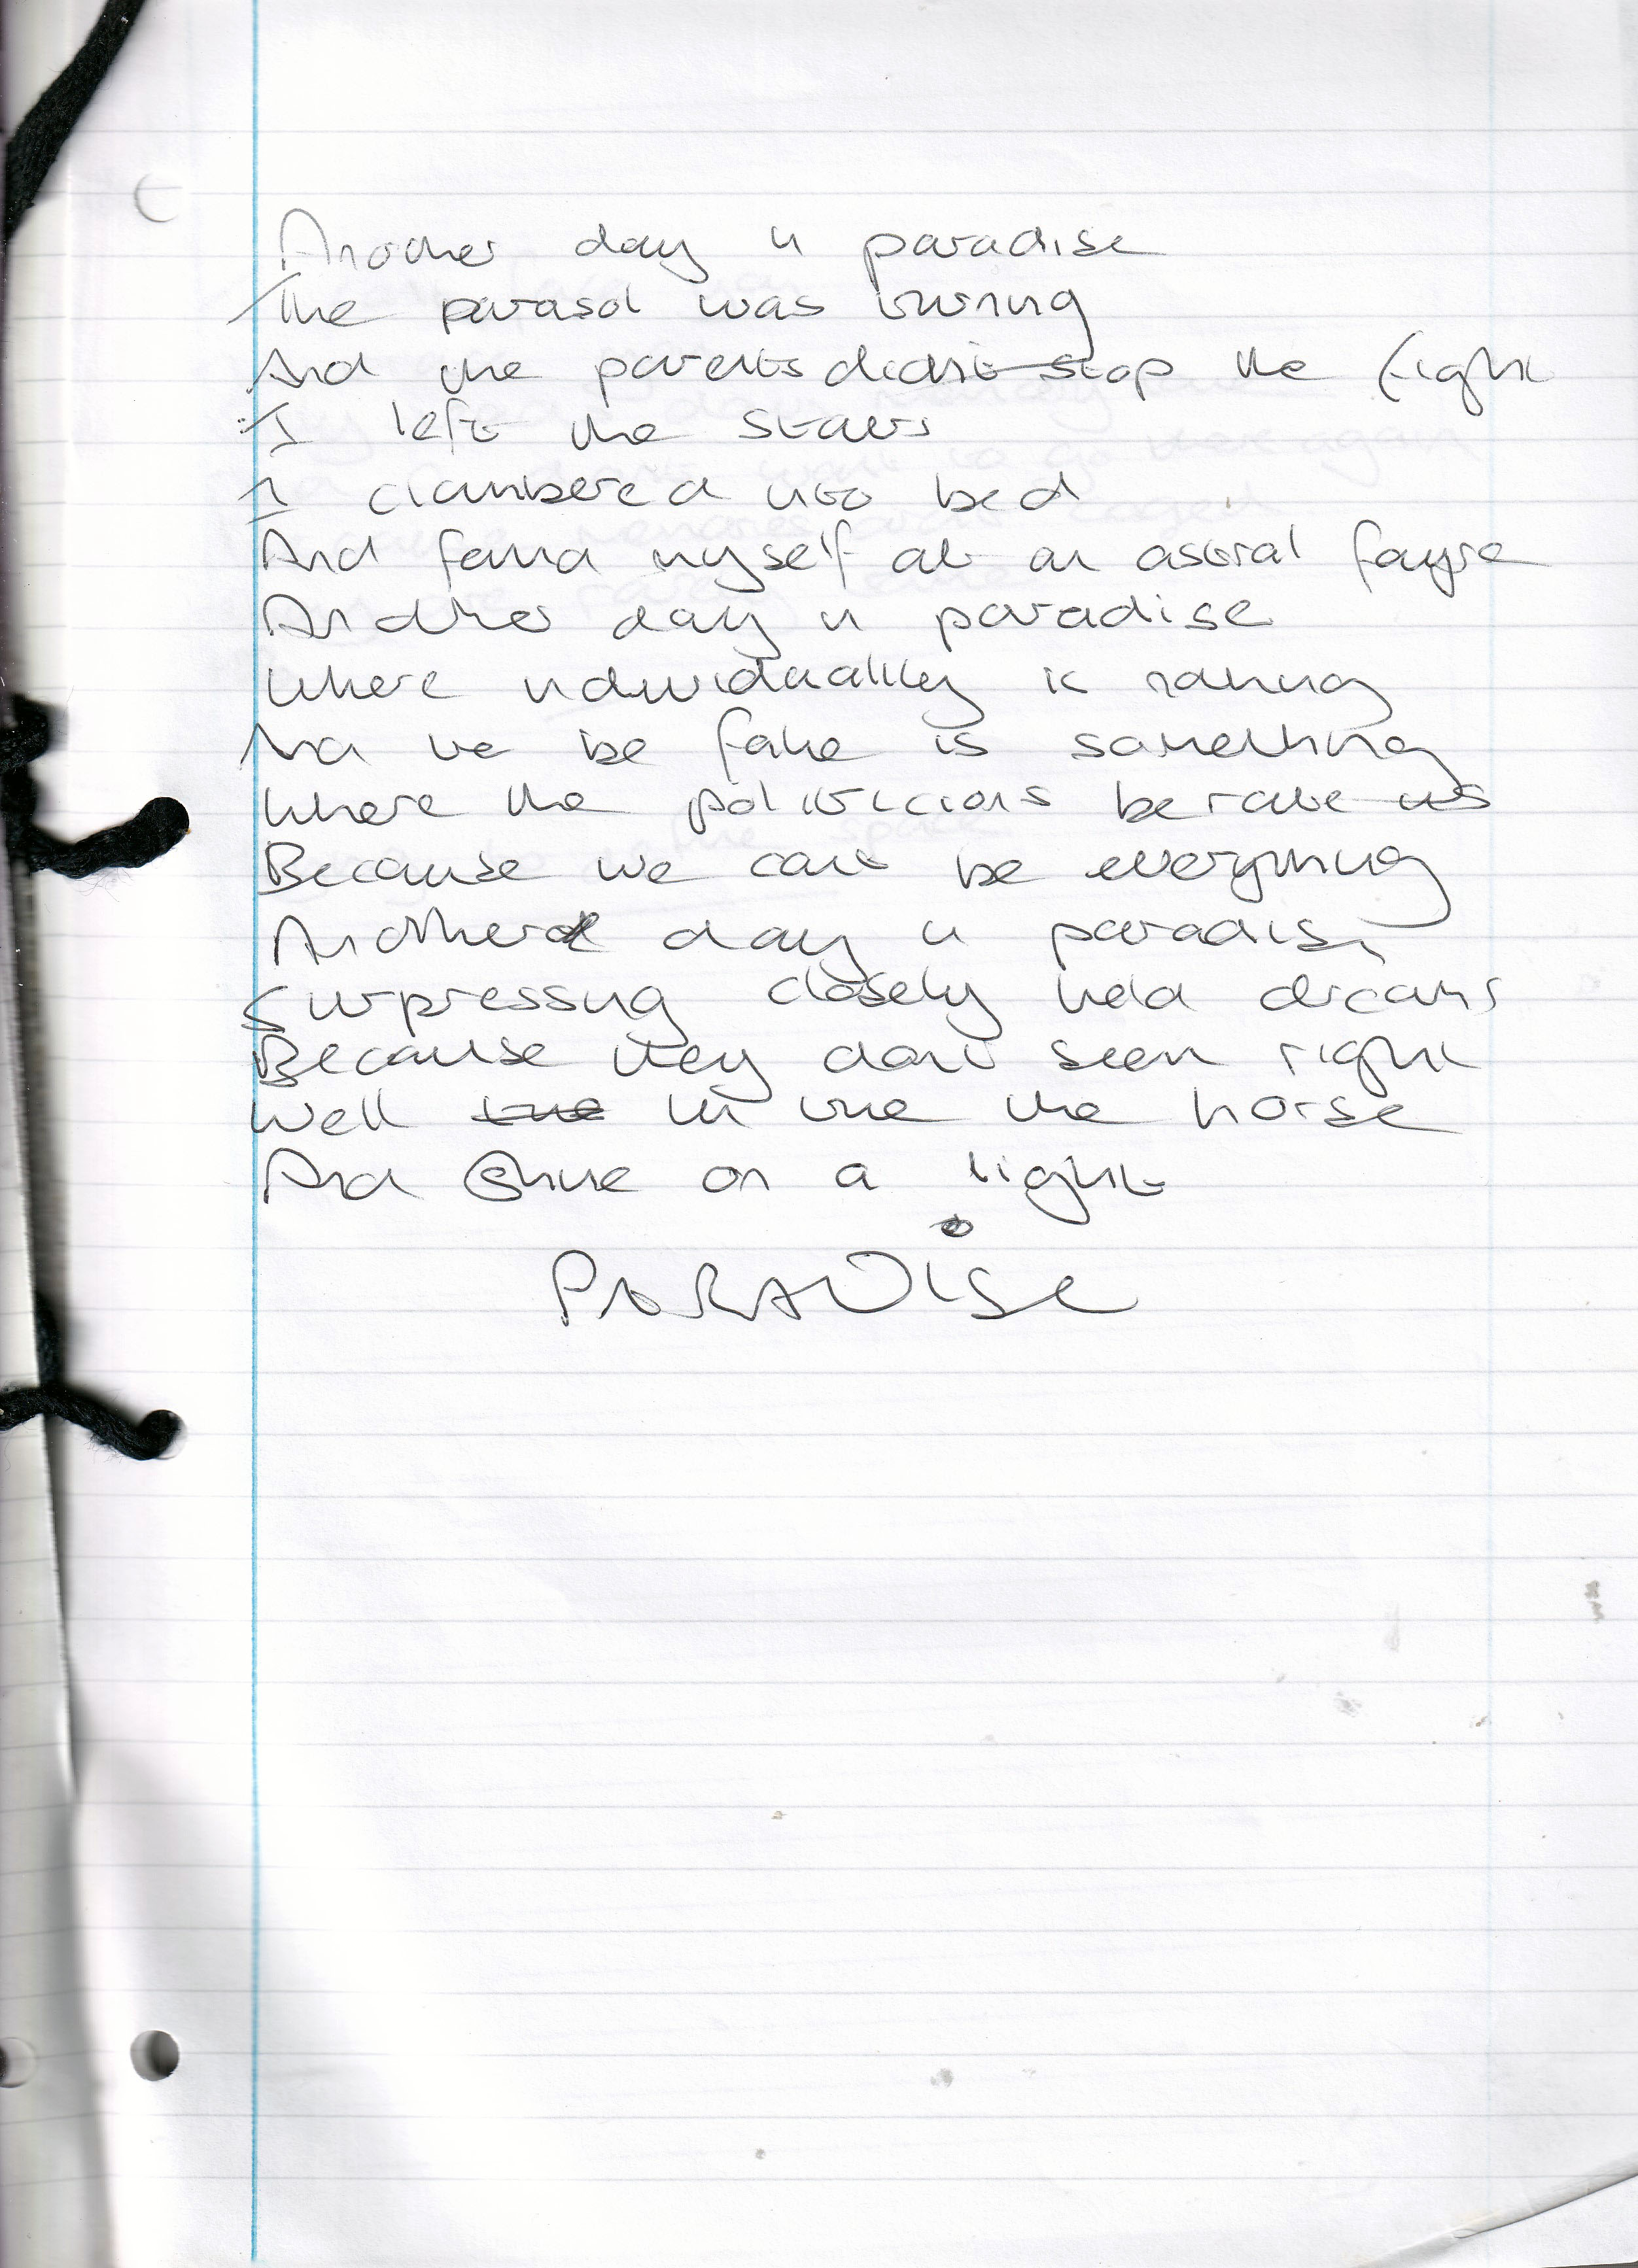 Another day in paradise
The parasol was burning
And the parents didnt stop the fight
I left the stairs
I clambered into bed
And found myself at an astral fayre
Another day in paradise
Where individuality is nothing
And be fake is something
Where the politicians berate us
Because we cant be everything
Another day in paradise
Surpressing closely held dreams
Because they dont seem right
Well the horse
And shine on a light
PARADiSe